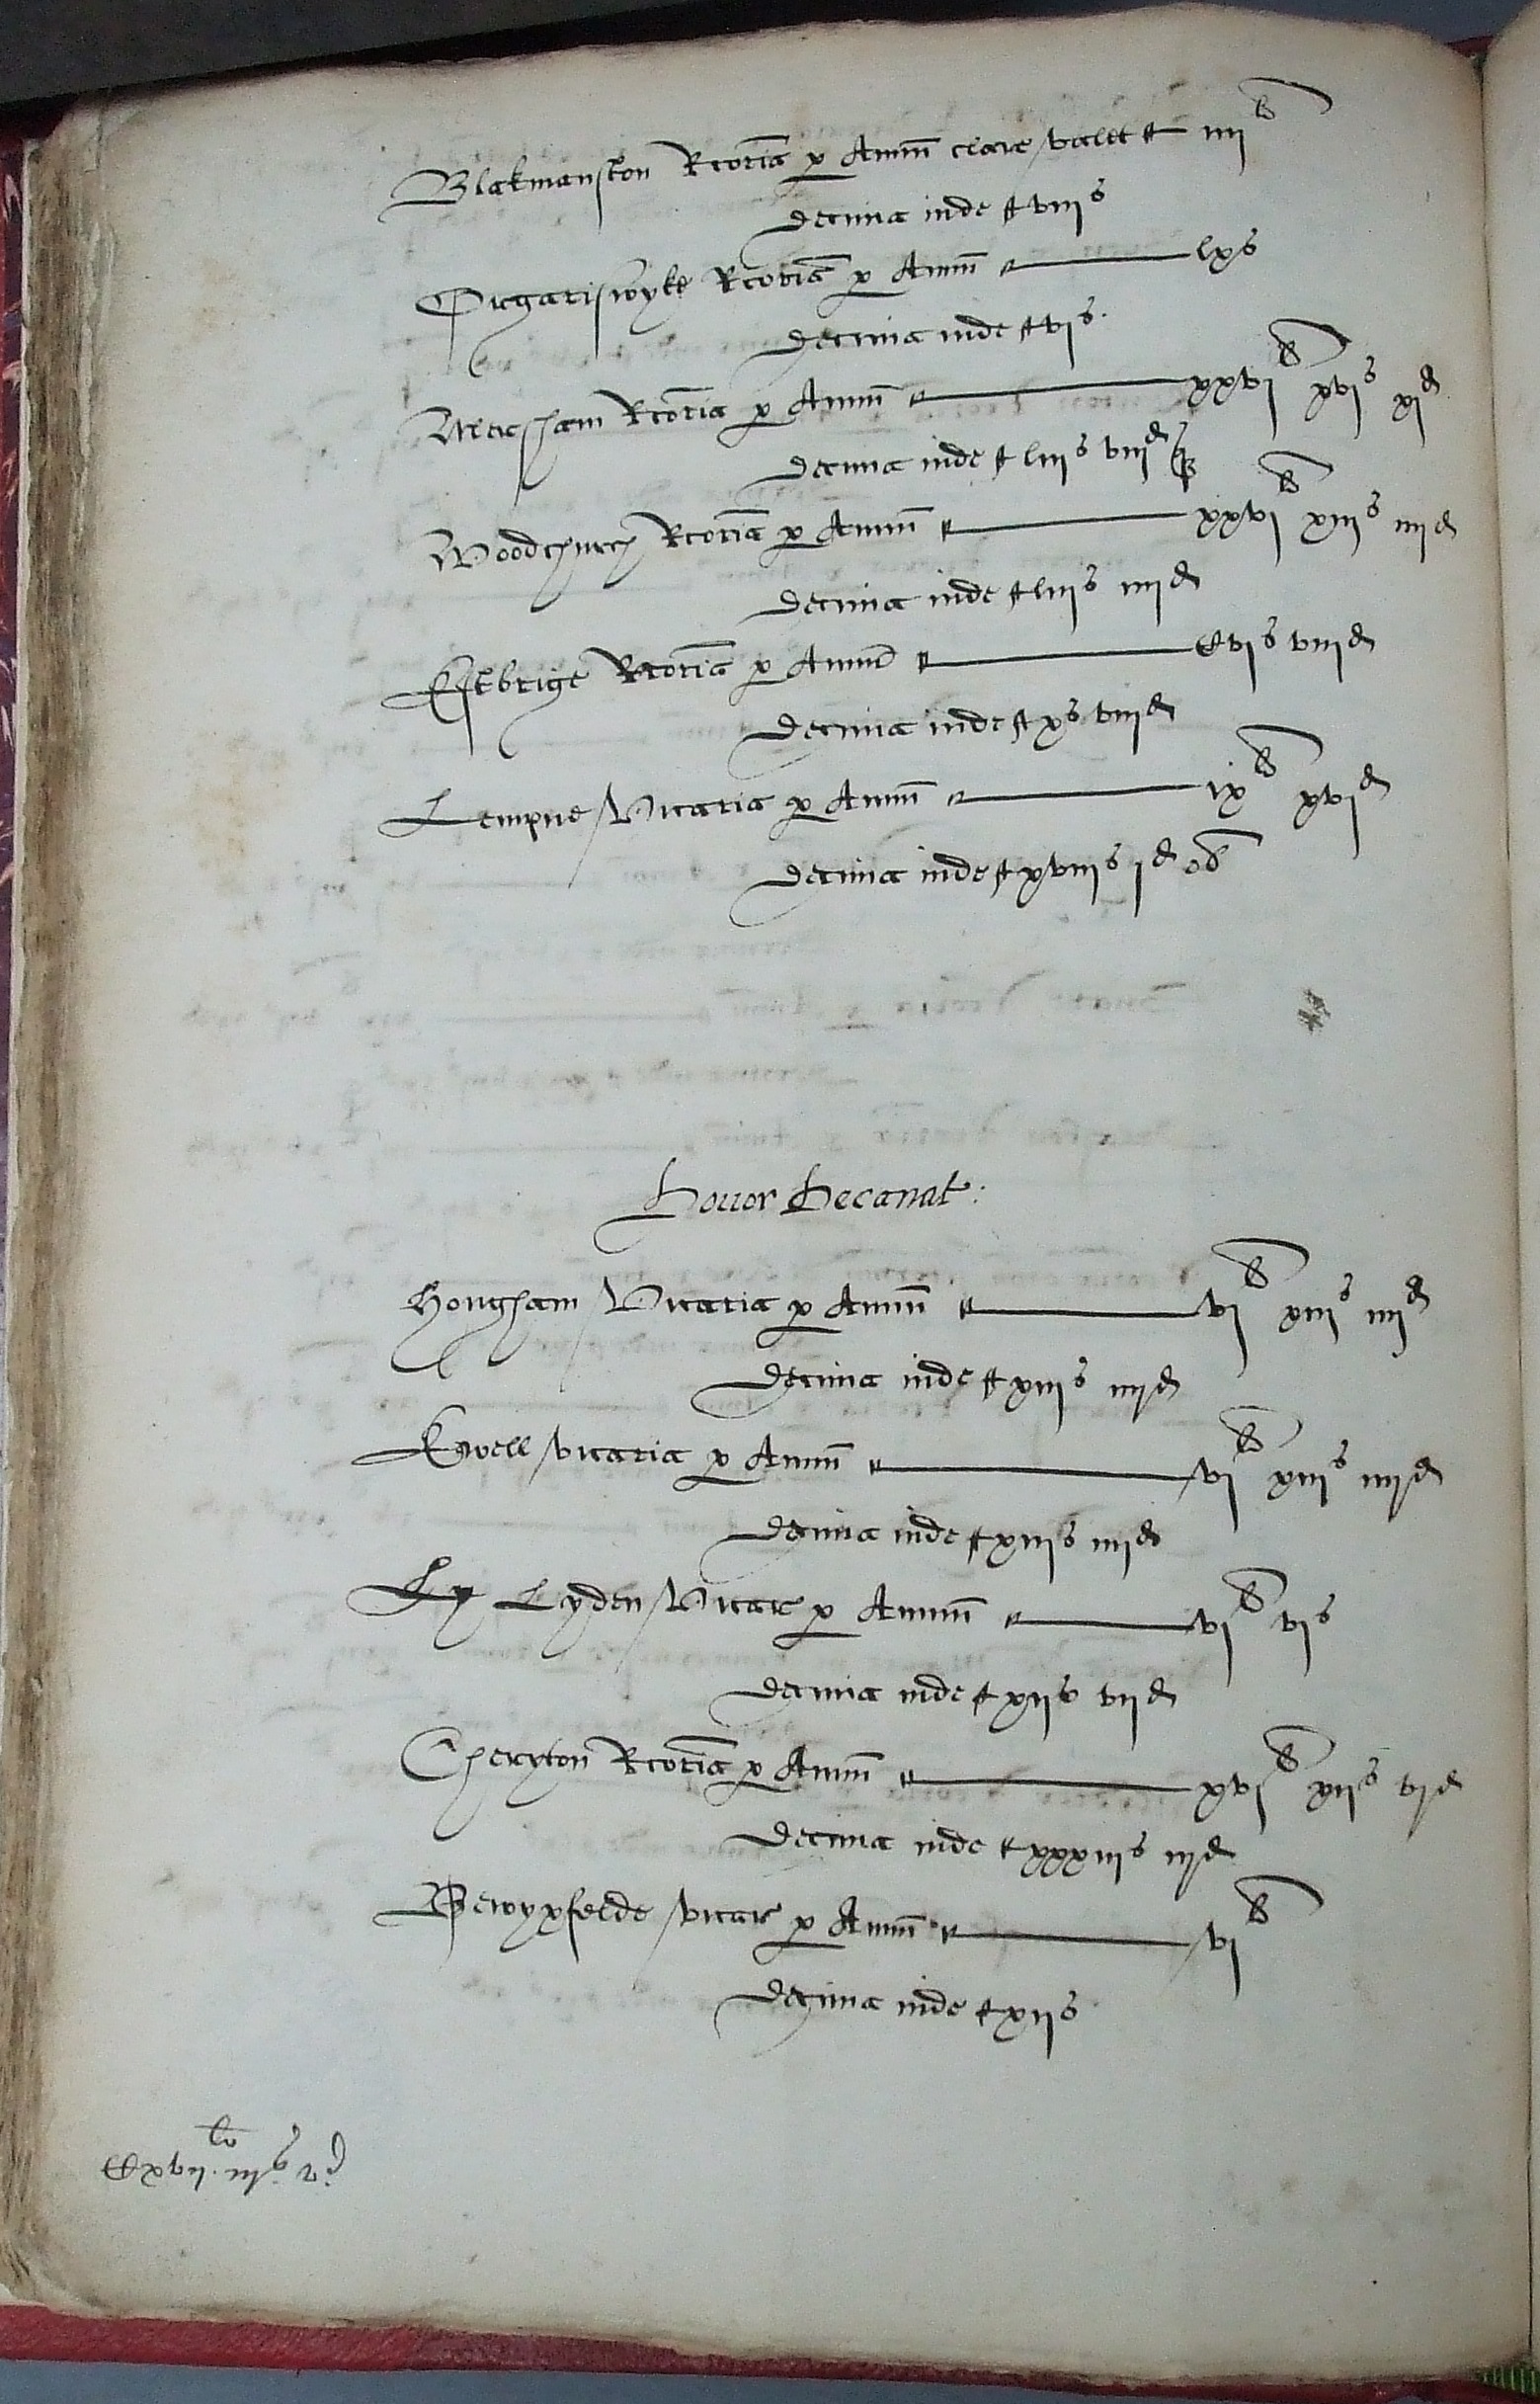 Blakmanston Rcoria p Annu clare valet iiij li
Decima inde viij s
Orgariswyke Rcoria p Annu lx s
Decima inde vj s.
Mersham Rcoria p Annu xxvj li xvj s xj d
Decima inde liij s viij d
Woodchurch Rcoria p Annu xxvj li xiij s iiij d
Decima inde liij s iiij d
Estbrige Rcoria p Annu Cvj s viij d
Decima inde x s viij d
Lempne Vicaria p Annu ix li xvj d
Decima inde xviij s j d ob
Dovor Decanat:
Hougham Vicaria p Annu vj li xiij s iiij d
Decima inde xiij s iiij d
Ewell vicaria p Annu vj li xiij s iiij d
Decima inde xiij s iiij d
Ly Lyden Vicar p Annu vj li vj s
Decima inde xij s vij d
Cheryton Rcoria p Annu xvj li xij s vj d
Decima inde xxxiij s iij d
Bewyxfelde vicar p Annu vj li
Decima inde xij s
Cxvij li iij s v d